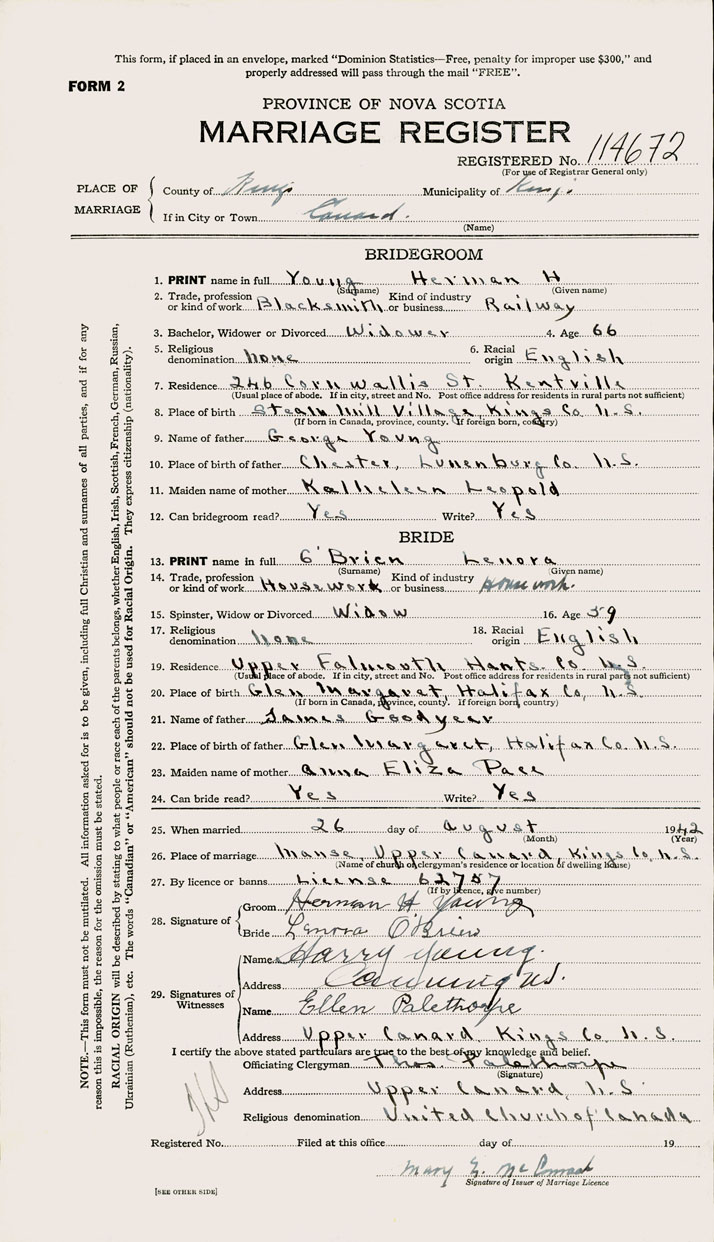 This form, if placed in an envelope, marked "Dominion Statistics—Free, penalty for improper use $300," and
properly addressed will pass through the mail "FREE".
FORM 2
PROVINCE OF NOVA SCOTIA
MARRIAGE REGISTER
REGISTERED No. 114672
(For use of Registrar General only)
PLACE OF MARRIAGE
County of Kings Municipality of Kings
If in City or Town Canard.
(Name)
BRIDEGROOM
1. PRINT name in full Young Herman H
(Surname) (Given name)
2. Trade, profession or kind of work Blacksmith Kind of industry or business Railway
3. Bachelor, Widower or Divorced Widower 4. Age 66
5. Religious denomination none 6. Racial origin English
7. Residence 246 Cornwallis St. Kentville
(Usual place of abode. If in city, street and No. Post office address for residents in rural parts not sufficient)
8. Place of birth Steam Mill Village, Kings Co N.S.
(If born in Canada, province, county. If foreign born, country)
9. Name of father George Young
10. Place of birth of father Chester, Lunenburg Co. N.S.
11. Maiden name of mother Katheleen Leopold
12. Can bridegroom read? Yes Write? Yes
BRIDE
13. PRINT name in full O'Brien Lenora
(Surname) (Given name)
14. Trade, profession or kind of work Housework Kind of industry or business Housework.
15. Spinster, Widow or Divorced Widow 16. Age 59
17. Religious denomination none 18. Racial origin English
19. Residence Upper Falmouth Hants Co N.S.
(Usual place of abode. If in city, street and No. Post office address for residents in rural parts not sufficient)
20. Place of birth Glen Margaret, Halifax Co, N.S
(If born in Canada, province, county. If foreign born, country)
21. Name of father James Goodyear
22. Place of birth of father Glen Margaret, Halifax Co. N.S.
23. Maiden name of mother Anna Eliza Pace
24. Can bride read? Yes Write? Yes
25. When married 26 day of August 1942
(Month) (Year)
26. Place of marriage Manse, Upper Canard, Kings Co, N.S.
(Name of church or clergyman's residence or location of dwelling house)
27. By licence or banns License 62757
(If by licence, give number)
28. Signature of
Groom Herman H Young
Bride Lenora O'Brien
29. Signatures of Witnesses
Name Harry Young.
Address Canning NS.
Name Ellen Palethorpe
Address Upper Canard, Kings Co N.S.
I certify the above stated particulars are true to the best of my knowledge and belief.
Officiating Clergyman Thos. Palethorpe
(Signature)
Address Upper Canard, N.S
Religious denomination United Church of Canada
Registered No. Filed at this office day of 19
Mary E. McConrad
Signature of Issuer of Marriage Licence
[SEE OTHER SIDE]
NOTE.—This form must not be mutilated. All information asked for is to be given, including full Christian and surnames of all parties, and if for any
reason this is impossible, the reason for the omission must be stated.
RACIAL ORIGIN will be described by stating to what people or race each of the parents belongs, whether English, Irish, Scottish, French, German, Russian,
Ukrainian (Ruthenian), etc. The words "Canadian" or "American" should not be used for Racial Origin. They express citizenship (nationality).